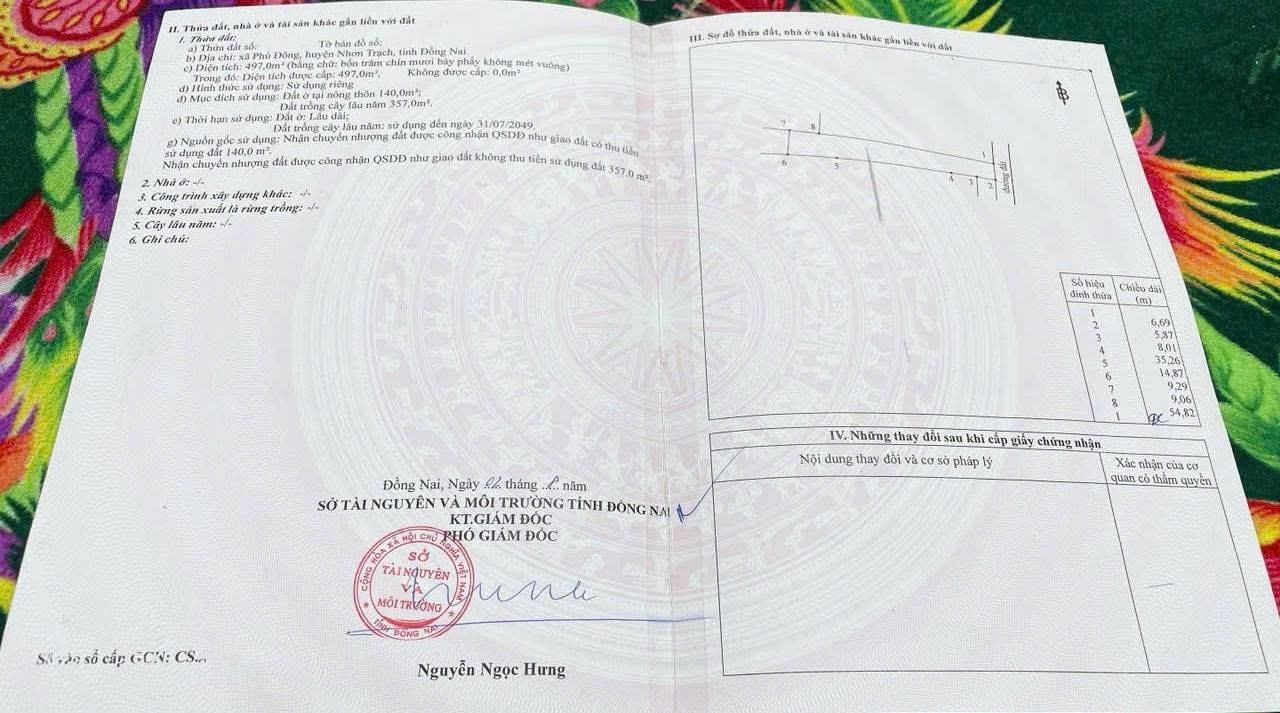 II. Thửa đất, nhà ở và tài sản khác gắn liền với đất
1. Thửa đất:
a) Thửa đất số: Tờ bản đồ số:
b) Địa chỉ: xã Phú Đông, huyện Nhơn Trạch, tỉnh Đồng Nai
c) Diện tích: 497,0m² (bằng chữ: bốn trăm chín mươi bảy phẩy không mét vuông)
Trong đó: Diện tích được cấp: 497,0m², Không được cấp: 0,0m²
d) Hình thức sử dụng: Sử dụng riêng
đ) Mục đích sử dụng: Đất ở tại nông thôn 140,0m²;
Đất trồng cây lâu năm 357,0m².
e) Thời hạn sử dụng: Đất ở: Lâu dài;
Đất trồng cây lâu năm: sử dụng đến ngày 31/07/2049.
g) Nguồn gốc sử dụng: Nhận chuyển nhượng đất được công nhận QSDĐ như giao đất có thu tiền
sử dụng đất 140,0 m².
Nhận chuyển nhượng đất được công nhận QSDĐ như giao đất không thu tiền sử dụng đất 357,0 m².
2. Nhà ở: -/-
3. Công trình xây dựng khác: -/-
4. Rừng sản xuất là rừng trồng: -/-
5. Cây lâu năm: -/-
6. Ghi chú:
Đồng Nai, Ngày tháng năm
SỞ TÀI NGUYÊN VÀ MÔI TRƯỜNG TỈNH ĐỒNG NAI
KT.GIÁM ĐỐC
PHÓ GIÁM ĐỐC
CỘNG HÒA XÃ HỘI CHỦ NGHĨA VIỆT NAM
SỞ
TÀI NGUYÊN
VÀ
MÔI TRƯỜNG
TỈNH ĐỒNG NAI
Nguyễn Ngọc Hưng
Số vào sổ cấp GCN: CS
III. Sơ đồ thửa đất, nhà ở và tài sản khác gắn liền với đất
B
7 8
1
6 5
4 3 2
đường đất
Số hiệu đỉnh thửa Chiều dài (m)
1
6,69
2
5,87
3
8,01
4
35,26
5
14,87
6
9,29
7
9,06
8
54,82
1
IV. Những thay đổi sau khi cấp giấy chứng nhận
Nội dung thay đổi và cơ sở pháp lý
Xác nhận của cơ
quan có thẩm quyền